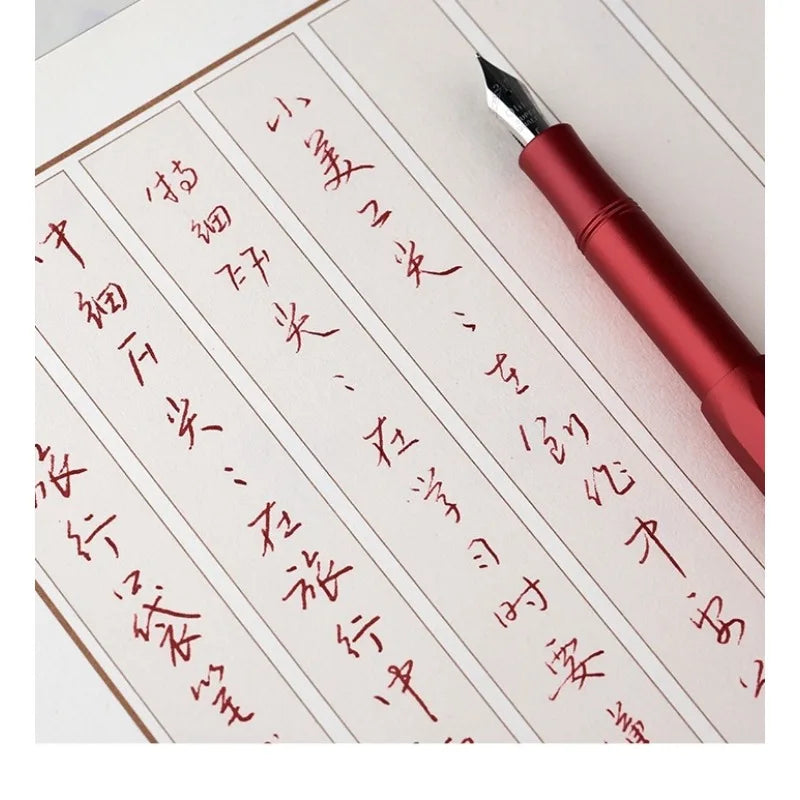 小美工尖：在创作中
特细尖：在学习时要
中细尖：在旅行中
旅行袋笔